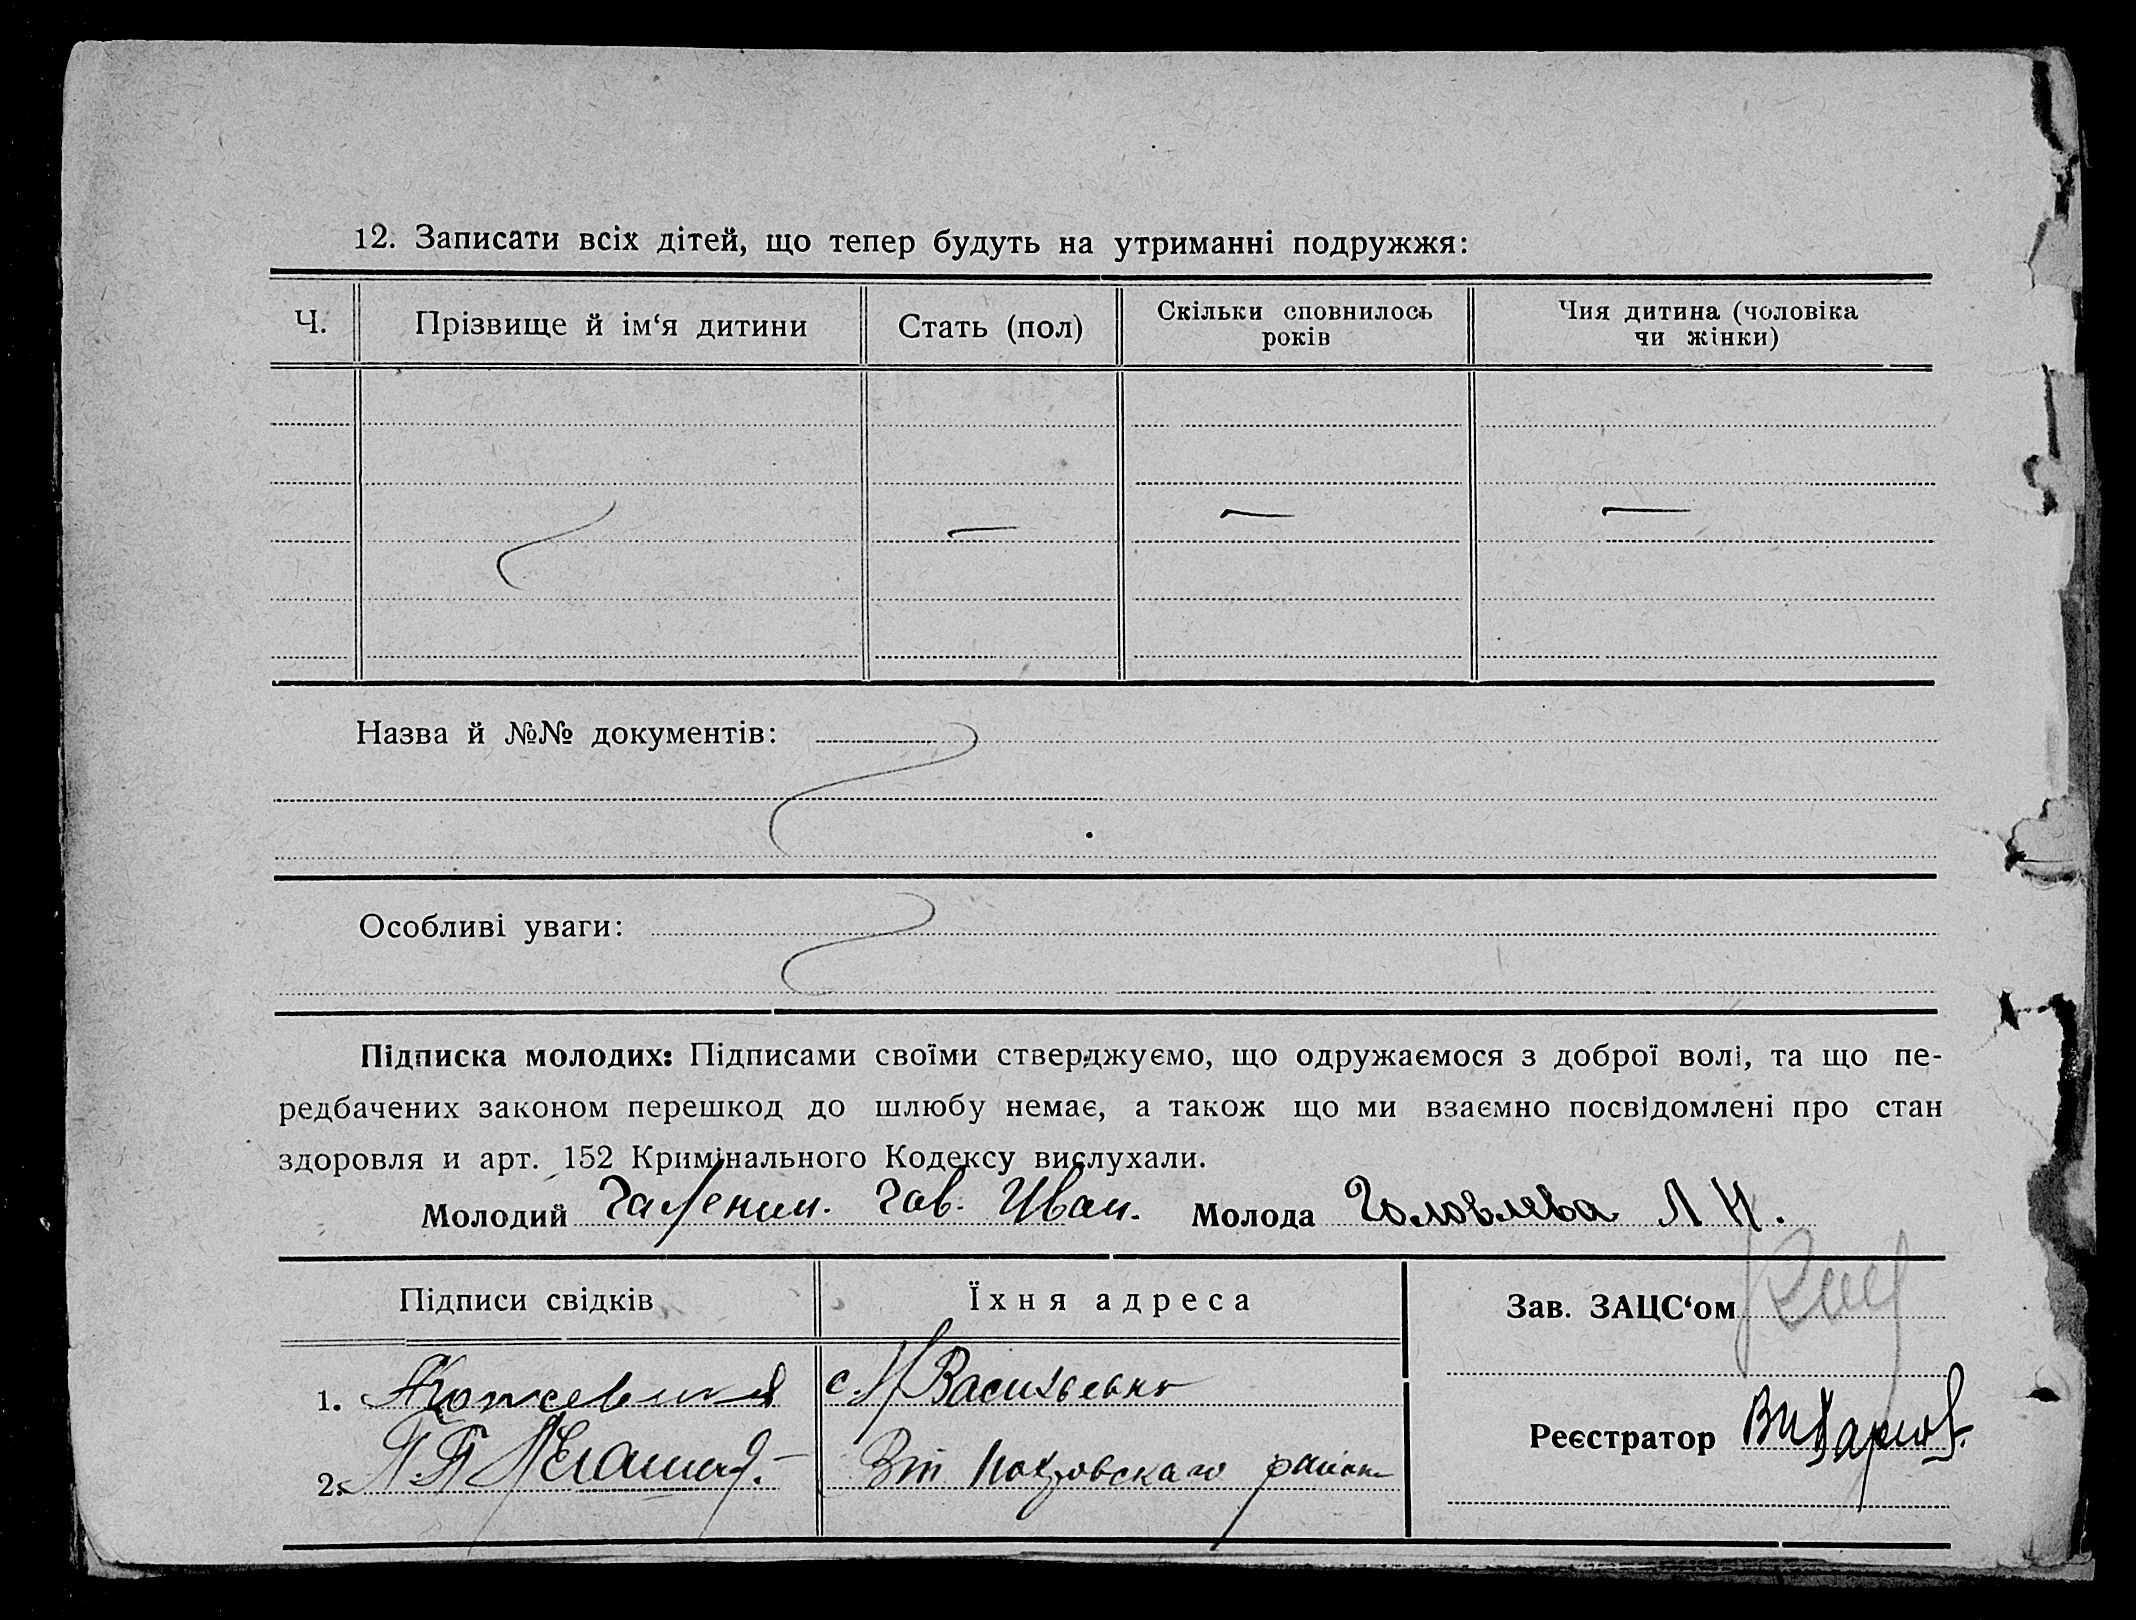 12. Записати всіх дітей, що тепер будуть на утриманні подружжя:
Ч. Прізвище й ім‘я дитини Стать (пол) Скільки сповнилось років Чия дитина (чоловіка чи жінки)
Назва й №№ документів:
Особливі уваги:
Підписка молодих: Підписами своїми стверджуємо, що одружаємося з доброї волі, та що пе-
редбачених законом перешкод до шлюбу немає, а також що ми взаємно посвідомлені про стан
здоровля и арт. 152 Кримінального Кодексу вислухали.
Молодий Гав. Иван. Молода Головлева Л Н.
Підписи свідків Їхня адреса Зав. ЗАЦС‘ом
1. с.
Реєстратор
2. Покровскаго район